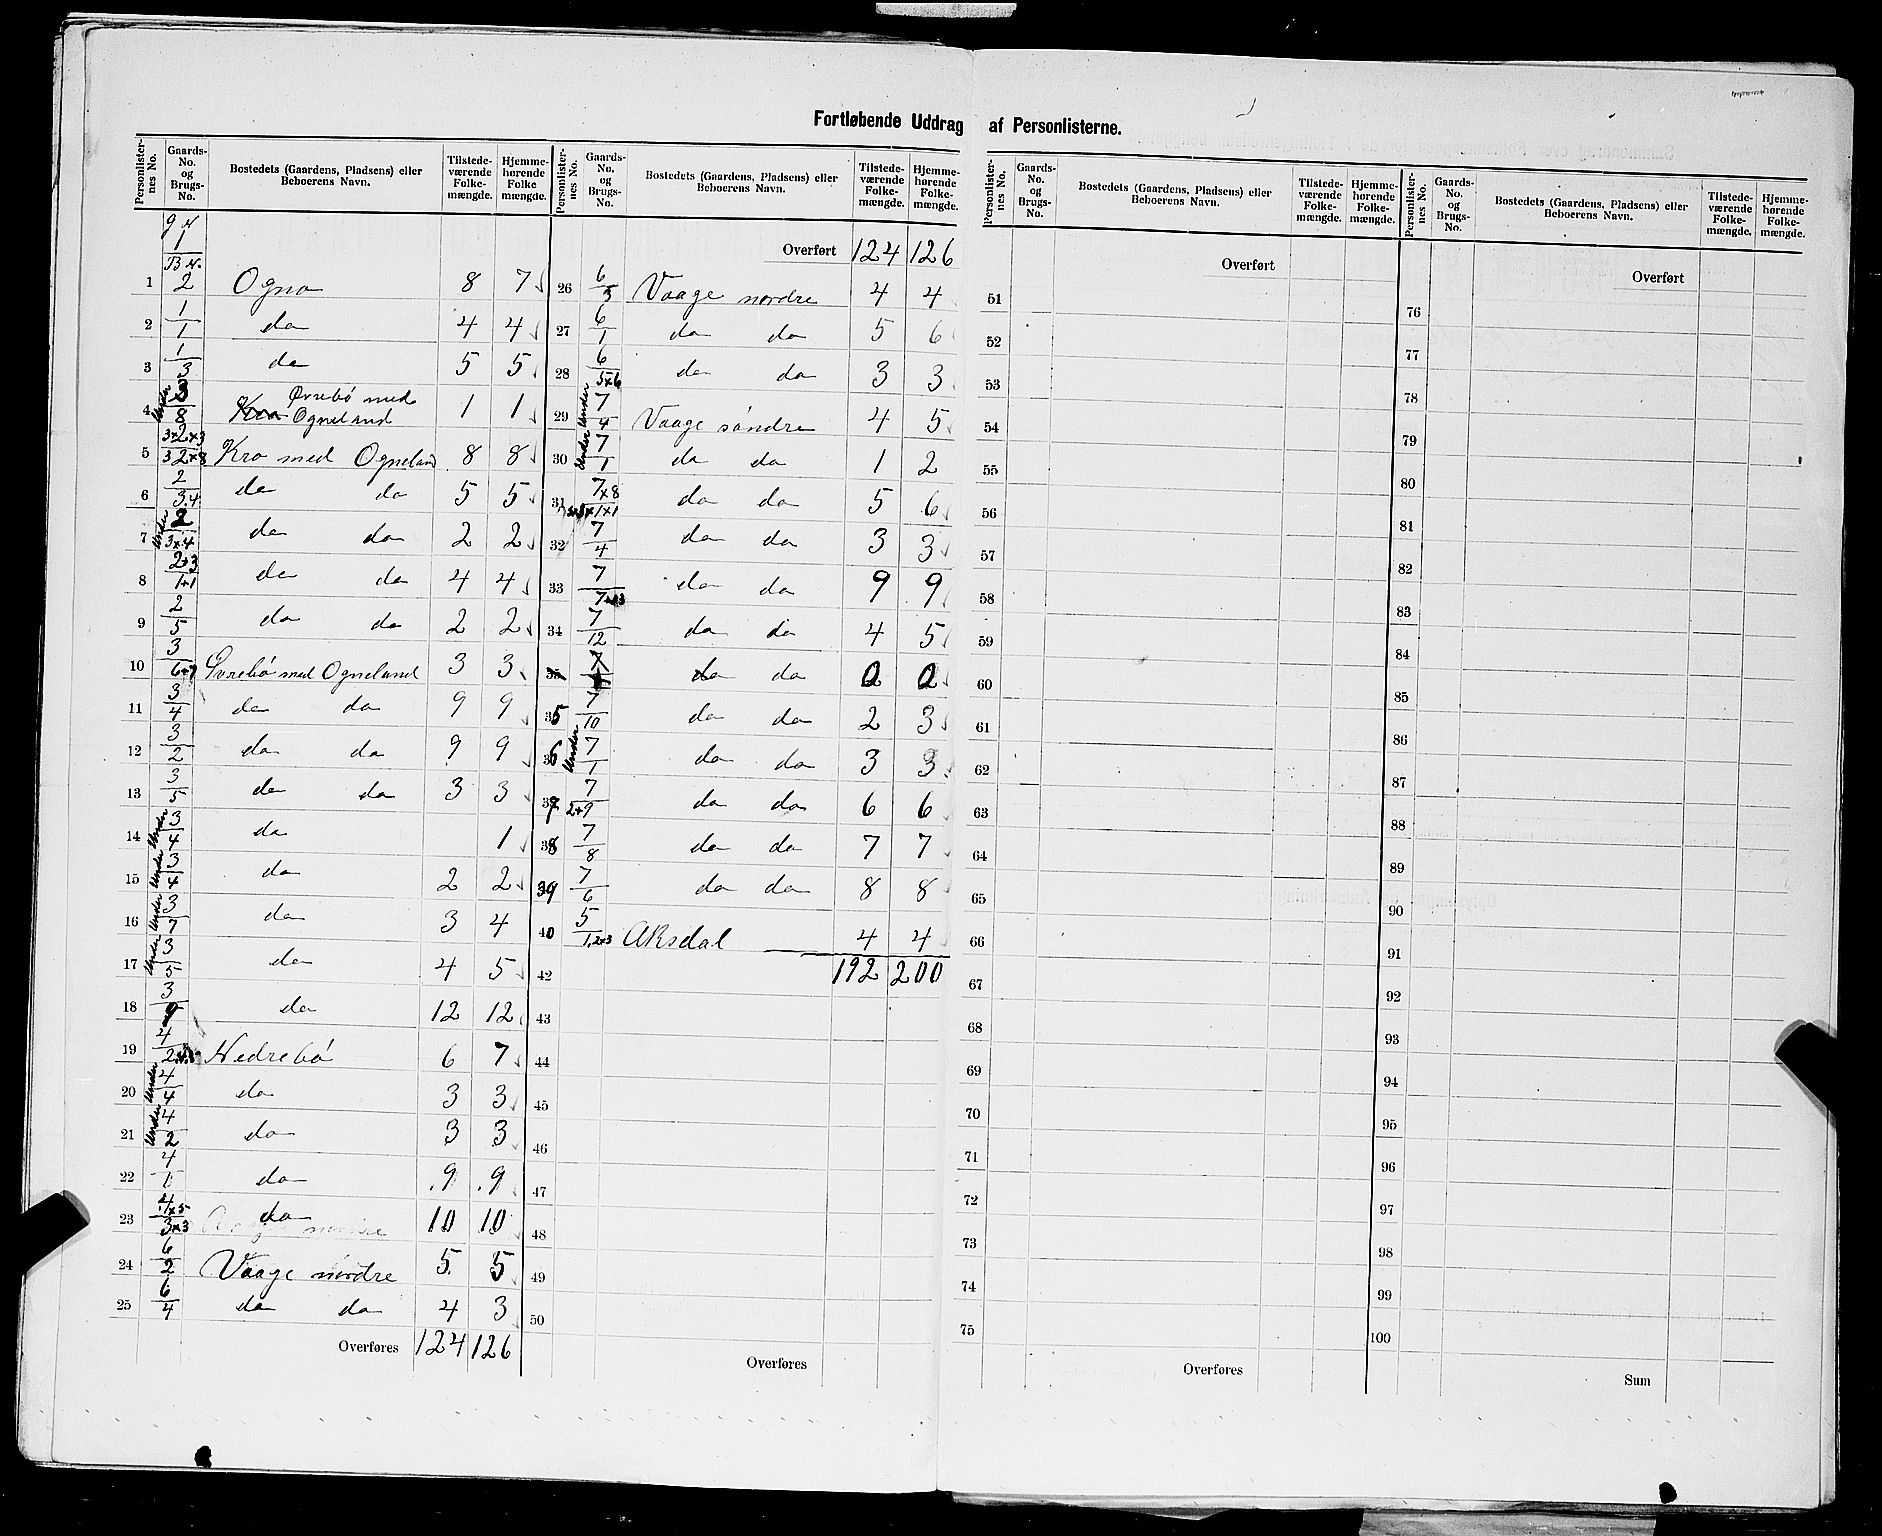 Fortløbende Uddrag af Personlisterne.
Personlister-nes No. | Gaards-No. og Brugs-No. | Bostedets (Gaardens, Pladsens) eller Beboerens Navn. | Tilstede-værende Folke-mængde. | Hjemme-hørende Folke mængde.
G N 1
B N.
1 | 2 | Ogna | 8 | 7
2 | 1/1 | do | 4 | 4
3 | 1/3 | do | 5 | 5
4 | Under 3/8 | Øvrebø med Ogneland | 1 | 1
5 | Kro med Ogneland | 8 | 8
6 | 2/3.4 | do do | 5 | 5
7 | Under 2/3x4 | do do | 2 | 2
8 | 2+3/1+1 | do do | 4 | 4
9 | 2/5 | do do | 2 | 2
10 | 3/6+7 | Øvrebø med Ogneland | 3 | 3
11 | 3/4 | do do | 9 | 9
12 | 3/2 | do do | 9 | 9
13 | 3/5 | do do | 3 | 3
14 | Under 3/4 | do | | 1
15 | Under 3/4 | do | 2 | 2
16 | Under 3/7 | do | 3 | 4
17 | Under 3/5 | do | 4 | 5
18 | 3 | do | 12 | 12
19 | 4 | Nedrebø | 6 | 7
20 | Under 4/4 | do | 3 | 3
21 | Under 4/2 | do | 3 | 3
22 | 4/1 | do | 9 | 9
23 | 4x5/3x3 | do | 10 | 10
24 | 6/2 | Vaage nordre | 5 | 5
25 | 6/4 | do do | 4 | 3
Overføres | 124 | 126
Personlister-nes No. | Gaards-No. og Brugs-No. | Bostedets (Gaardens, Pladsens) eller Beboerens Navn. | Tilstede-værende Folke-mængde. | Hjemme-hørende Folke-mængde.
Overført | 124 | 126
26 | 6/3 | Vaage nordre | 4 | 4
27 | 6/1 | do do | 5 | 6
28 | 6/5x6 | do do | 3 | 3
29 | Under 7/4 | Vaage søndre | 4 | 5
30 | Under 7/1 | do do | 1 | 2
31 | do do | 5 | 6
32 | 7/4 | do do | 3 | 3
33 | 7 | do do | 9 | 9
34 | 7/12 | do do | 4 | 5
35 | do do | 0 | 0
35 | 7/10 | do do | 2 | 3
36 | Under 7/1 | do do | 3 | 3
37 | 7/2+9 | do do | 6 | 6
38 | 7/8 | do do | 7 | 7
39 | 7/6 | do do | 8 | 8
40 | 5/1,2+3 | Aksdal | 4 | 4
42 | 192 | 200
43
44
45
46
47
48
49
50
Overføres
Personlister-nes No. | Gaards-No. og Brugs-No. | Bostedets (Gaardens, Pladsens) eller Beboerens Navn. | Tilstede-værende Folke-mængde. | Hjemme-hørende Folke-mængde.
Overført
51
52
53
54
55
56
57
58
59
60
61
62
63
64
65
66
67
68
69
70
71
72
73
74
75
Overføres
Personlister-nes No. | Gaards-No. og Brugs-No. | Bostedets (Gaardens, Pladsens) eller Beboerens Navn. | Tilstede-værende Folke-mængde. | Hjemme-hørende Folke-mængde.
Overført
76
77
78
79
80
81
82
83
84
85
86
87
88
89
90
91
92
93
94
95
96
97
98
99
100
Sum